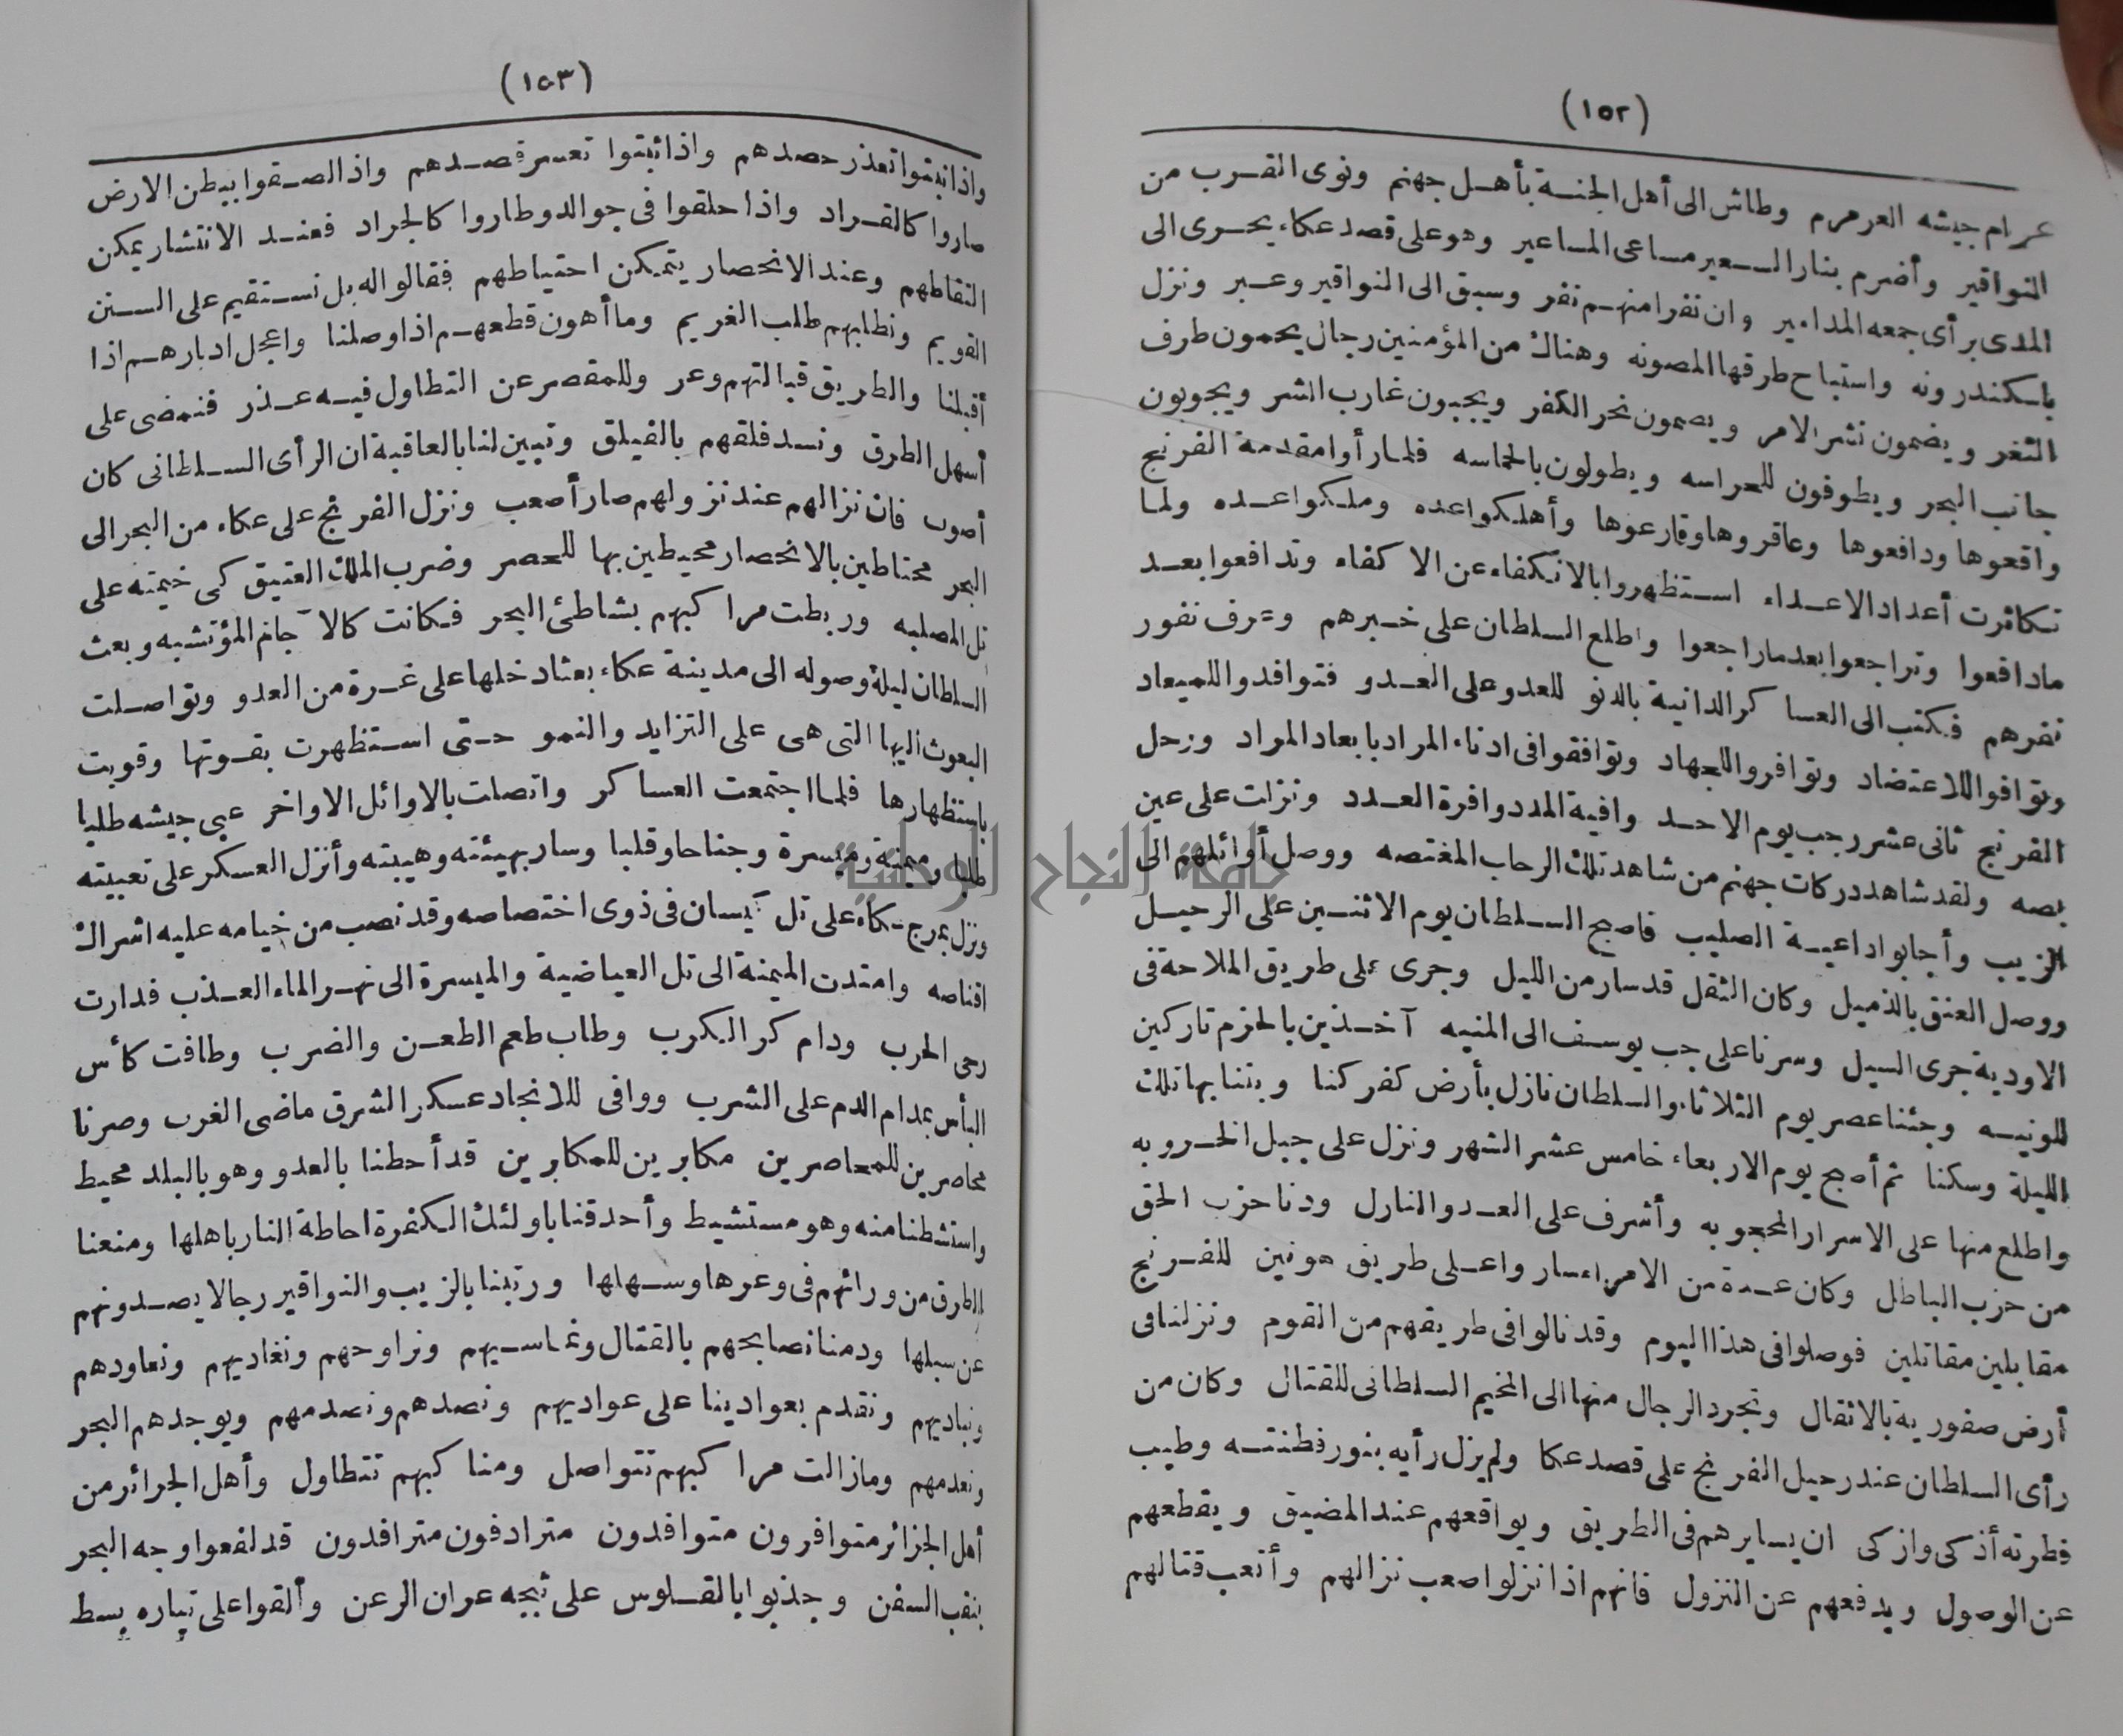 (١٥٢)
عرام جيشه العرمرم وطاش الى أهل الجنة بأهل جهنم ونوى القرب من
النواقير وأضرم بنار السعير مساعى المساعير وهو على قصد عكاء يجرى الى
المدى برأى جمعه المدابير وان نفرا منهم نفر وسبق الى النواقير وعبر ونزل
باسكندرونه واستباح طرقها المصونه وهناك من المؤمنين رجال يحمون طرف
الثغر ويضمون نشر الامر ويصمون نحر الكفر ويجبون غارب الشر ويجوبون
جانب البحر ويطوفون للحراسه ويطولون بالحماسه فلما رأوا مقدمة الفرنج
واقعوها ودافعوها وعاقروها وقارعوها وأهلكوا عده وملكوا عده ولما
تكاثرت أعداد الاعداء استظهروا بالانكفاء عن الاكفاء وتدافعوا بعد
مادافعوا وتراجعوا بعد ماراجعوا واطلع السلطان على خبرهم وعرف نفور
نفرهم فكتب الى العساكر الدانية بالدنو للعدو على العدو فتوافدوا للميعاد
وتوافوا للاعتضاد وتوافروا للجهاد وتوافقوا فى ادناء المراد بابعاد المراد ورحل
الفرنج ثانى عشر رجب يوم الاحد وافية المدد وافرة العدد ونزلت على عين
بصه ولقد شاهد دركات جهنم من شاهد تلك الرحاب المغتصه ووصل أوائلهم الى
الزيب وأجابوا داعية الصليب فاصبح السلطان يوم الاثنين على الرحيل
ووصل العنق بالذميل وكان الثقل قد سار من الليل وجرى على طريق الملاحة فى
الاودية جرى السيل وسرنا على جب يوسف الى المنيه آخذين بالحزم تاركين
للونيه وجئنا عصر يوم الثلاثاء والسلطان نازل بأرض كفركنا وبتنا بها تلك
الليلة وسكنا ثم أصبح يوم الاربعاء خامس عشر الشهر ونزل على جبل الخروبه
واطلع منها على الاسرار المحجوبه وأشرف على العدو النازل ودنا حزب الحق
من حزب الباطل وكان عدة من الامراء سار واعلى طريق هونين للفرنج
مقابلين مقاتلين فوصلوا فى هذا اليوم وقد نالوا فى طريقهم من القوم ونزلنا فى
أرض صفورية بالاثقال وتجرد الرجال منها الى المخيم السلطانى للقتال وكان من
رأى السلطان عند رحيل الفرنج على قصد عكا ولم يزل رأيه بنور فطنته وطيب
فطرته أذكى وازكى ان يسايرهم فى الطريق ويواقعهم عند المضيق ويقطعهم
عن الوصول ويدفعهم عن النزول فانهم اذا نزلوا صعب نزالهم وأتعب قتالهم
(١٥٣)
واذا نبتوا تعذر حصدهم واذا ثبتوا تعسر قصدهم واذا لصقوا ببطن الارض
صاروا كالقراد واذا حلقوا فى جو الدو طاروا كالجراد فعند الانتشار يمكن
التقاطهم وعند الانحصار يتمكن احتياطهم فقالوا له بل نستقيم على السنن
القويم ونطلبهم طلب الغريم وما أهون قطعهم اذا وصلنا واعجل ادبارهم اذا
أقبلنا والطريق قبالتهم وعر وللمقصر عن التطاول فيه عذر فنمضى على
أسهل الطرق ونسد فلقهم بالفيلق وتبين لنا بالعاقبة ان الرأى السلطانى كان
أصوب فان نزالهم عند نزولهم صار أصعب ونزل الفرنج على عكاء من البحر الى
البحر محتاطين بالانحصار محيطين بها للحصر وضرب الملك العتيق كى خيمته على
تل المصلبه وربطت مراكبهم بشاطئ البحر فكانت كالآجام المؤتشبه وبعث
السلطان ليلة وصوله الى مدينة عكاء بعثا دخلها على غرة من العدو وتواصلت
البعوث اليها التى هى على التزايد والنمو حتى استظهرت بقوتها وقويت
باستظهارها فلما اجتمعت العساكر واتصلت بالاوائل الاواخر عبى جيشه طلبا
طلبا وميمنة وميسرة وجناحا وقلبا وسار بهيئته وهيبته وأنزل العسكر على تعبيته
ونزل بمرج عكاء على تل كيسان فى ذوى اختصاصه وقد نصب من خيامه عليه اشراك
اقناصه وامتدت الميمنة الى تل العياضية والميسرة الى نهر الماء العذب فدارت
رحى الحرب ودام كر الكرب وطاب طعم الطعن والضرب وطافت كأس
البأس بمدام الدم على الشرب ووافى للانجاد عسكر الشرق ماضى الغرب وصرنا
محاصرين للمحاصرين مكابرين للمكابرين قد أحطنا بالعدو وهو بالبلد محيط
واستشطنا منه وهو مستشيط وأحدقنا باولئك الكفرة احاطة النار باهلها ومنعنا
الطرق من ورائهم فى وعرها وسهلها ورتبنا بالزيب والنواقير رجالا يصدونهم
عن سبلها ودمنا نصابحهم بالقتال ونماسيهم ونراوحهم ونغاديهم ونعاودهم
ونباديهم ونقدم بعوادينا على عواديهم ونصدهم ونصدمهم ويوجدهم البحر
ونعدمهم ومازالت مراكبهم تتواصل ومناكبهم تتطاول وأهل الجرائر من
أهل الجزائر متوافرون متوافدون مترادفون مترافدون قد لفعوا وجه البحر
بنقب السفن وجذبوا بالقلوس على ثبجه عران الرعن وألقوا على تياره بسط
جامعة النجاح الوطنية